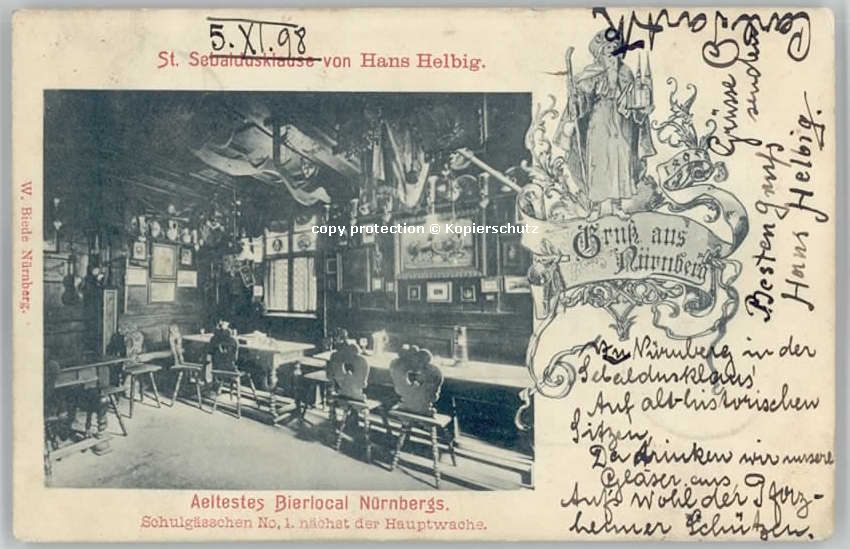 5. XI. 98
St. Sebaldusklause von Hans Helbig.
W. Biede Nürnberg.
copy protection © Kopierschutz
Gruß aus
Nürnberg
Aeltestes Bierlocal Nürnbergs.
Schulgässchen No. 1. nächst der Hauptwache.
Grüsse
senden
Besten gruß
Hans Helbig.
Zu Nürnberg in der
Sebaldusklaus'
Auf alt-historischen
Sitzen,
Da trinken wir unsere
Gläser aus
Auf's Wohl der Pforz-
heimer Schützen.